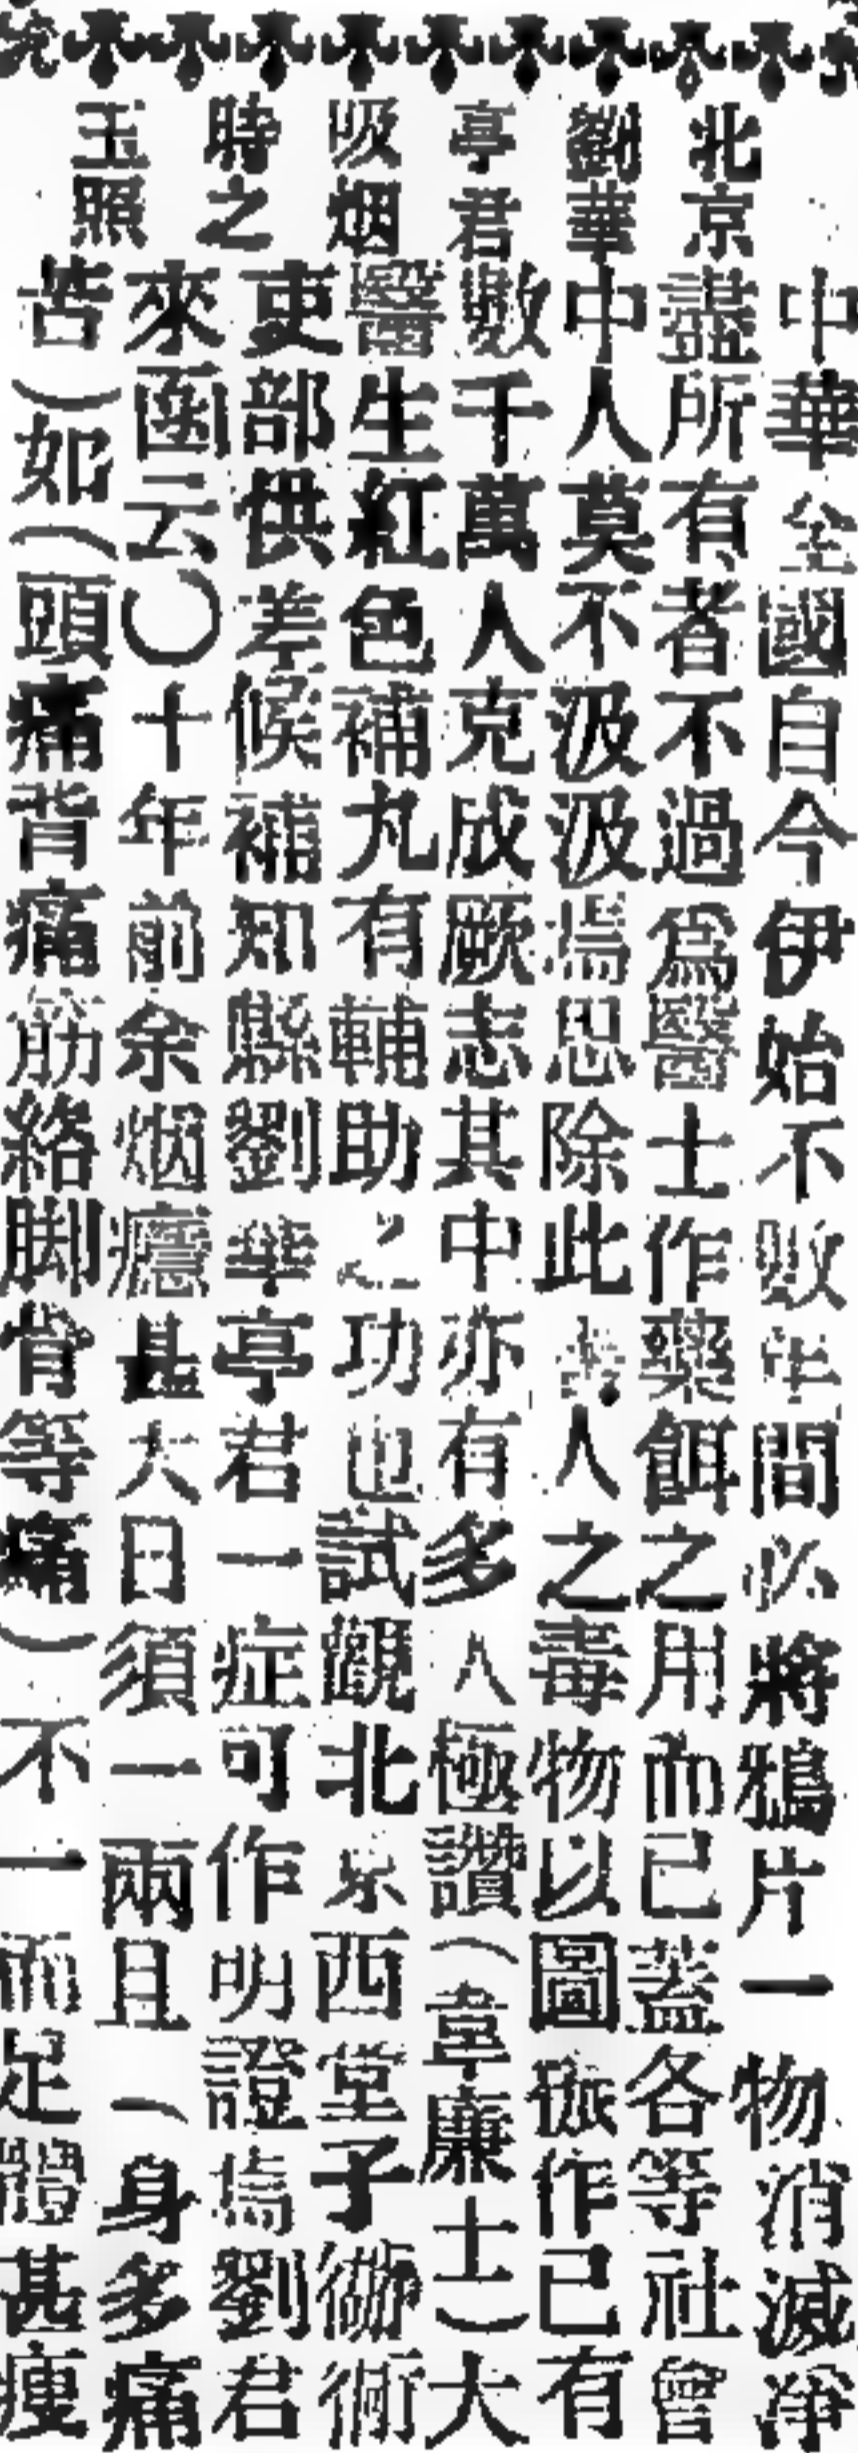 北京
劉華
亭君
吸烟
時之
玉照
中華全國自今伊始不數年間必將鴉片一物消滅淨
盡所有者不過爲醫士作藥餌之用而已蓋各等社會
中人莫不汲汲焉思除此人之毒物以圖振作已有
數千萬人克成厥志其中亦有多人極讚(韋廉士)大
醫生紅色補丸有輔助之功也試觀北京西堂子衚衕
吏部供差候補知縣劉華亭君一症可作明證焉劉君
來函云〇十年前余烟癮甚大日須一兩且(身多痛
苦)如(頭痛背痛筋絡脚骨等痛)不一而足體甚瘦